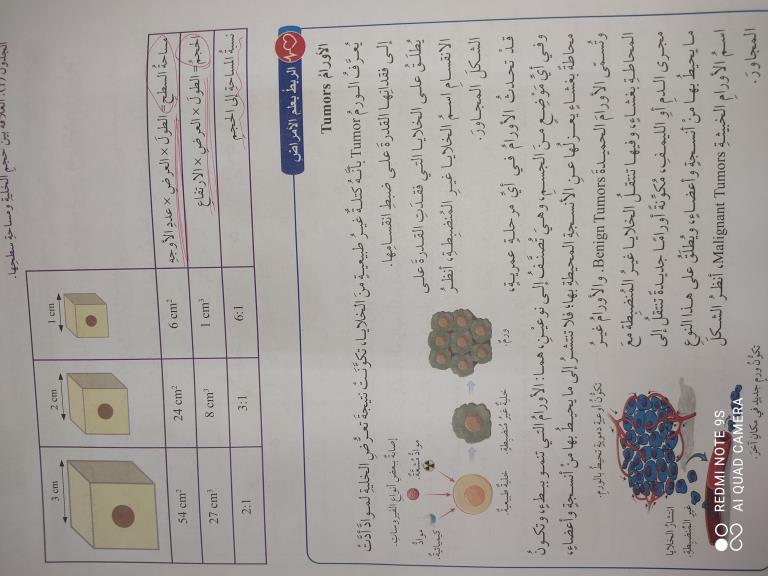 الجدول (1): العلاقة بين حجم الخلية ومساحة سطحها.
1 cm
2 cm
3 cm
مساحة السطح = الطول × العرض × عدد الأوجه
6 cm²
24 cm²
54 cm²
الحجم = الطول × العرض × الارتفاع
1 cm³
8 cm³
27 cm³
نسبة المساحة إلى الحجم
6:1
3:1
2:1
الربط بعلم الأمراض
الأورام Tumors
يُعرَّفُ الورم Tumor بأنَّهُ كتلةٌ غيرُ طبيعيةٍ منَ الخلايا، تكوَّنَتْ نتيجةَ تعرُّضِ الخليةِ لموادَّ أدَّتْ
إلى فقدانِها القدرةَ على ضبطِ انقسامِها.
يُطلَقُ على الخلايا التي فقدَتِ القدرةَ على
الانقسامِ اسمُ الخلايا غيرِ المُنضبِطةِ، أنظُرُ
الشكلَ المجاورَ.
إصابةٌ ببعضِ أنواعِ الفيروساتِ.
موادُّ مُشِعَّةٌ.
موادُّ
كيميائيةٌ.
خليةٌ طبيعيةٌ.
خليةٌ غيرُ مُنضبِطةٍ.
ورمٌ.
قدْ تحدثُ الأورامُ في أيِّ مرحلةٍ عمريةٍ،
وفي أيِّ مَوْضِعٍ منَ الجسمِ، وهيَ تُصنَّفُ إلى نوعينِ، هما: الأورامُ التي تنمو ببطءٍ، وتكونُ
محاطةً بغشاءٍ يعزلُها عنِ الأنسجةِ المحيطةِ بها، فلا تنتشرُ إلى ما يحيطُ بها منْ أنسجةٍ وأعضاءٍ،
وتُسمّى الأورامَ الحميدةَ Benign Tumors. والأورامُ غيرُ
المحاطةِ بغشاءٍ، وفيها تنتقلُ الخلايا غيرُ المُنضبِطةِ معَ
مجرى الدمِ أوِ الليمفِ، مُكوِّنةً أورامًا جديدةً تنتقلُ إلى
ما يحيطُ بها منْ أنسجةٍ وأعضاءٍ، ويُطلَقُ على هذا النوعِ
اسمُ الأورامِ الخبيثةِ Malignant Tumors، أنظُرُ الشكلَ
المجاورَ.
تكوُّنُ أوعيةٍ دمويةٍ تحيطُ بالورمِ.
انتشارُ الخلايا
غيرِ المُنضبِطةِ.
تكوُّنُ ورمٍ جديدٍ في مكانٍ آخرَ.
REDMI NOTE 9S
AI QUAD CAMERA